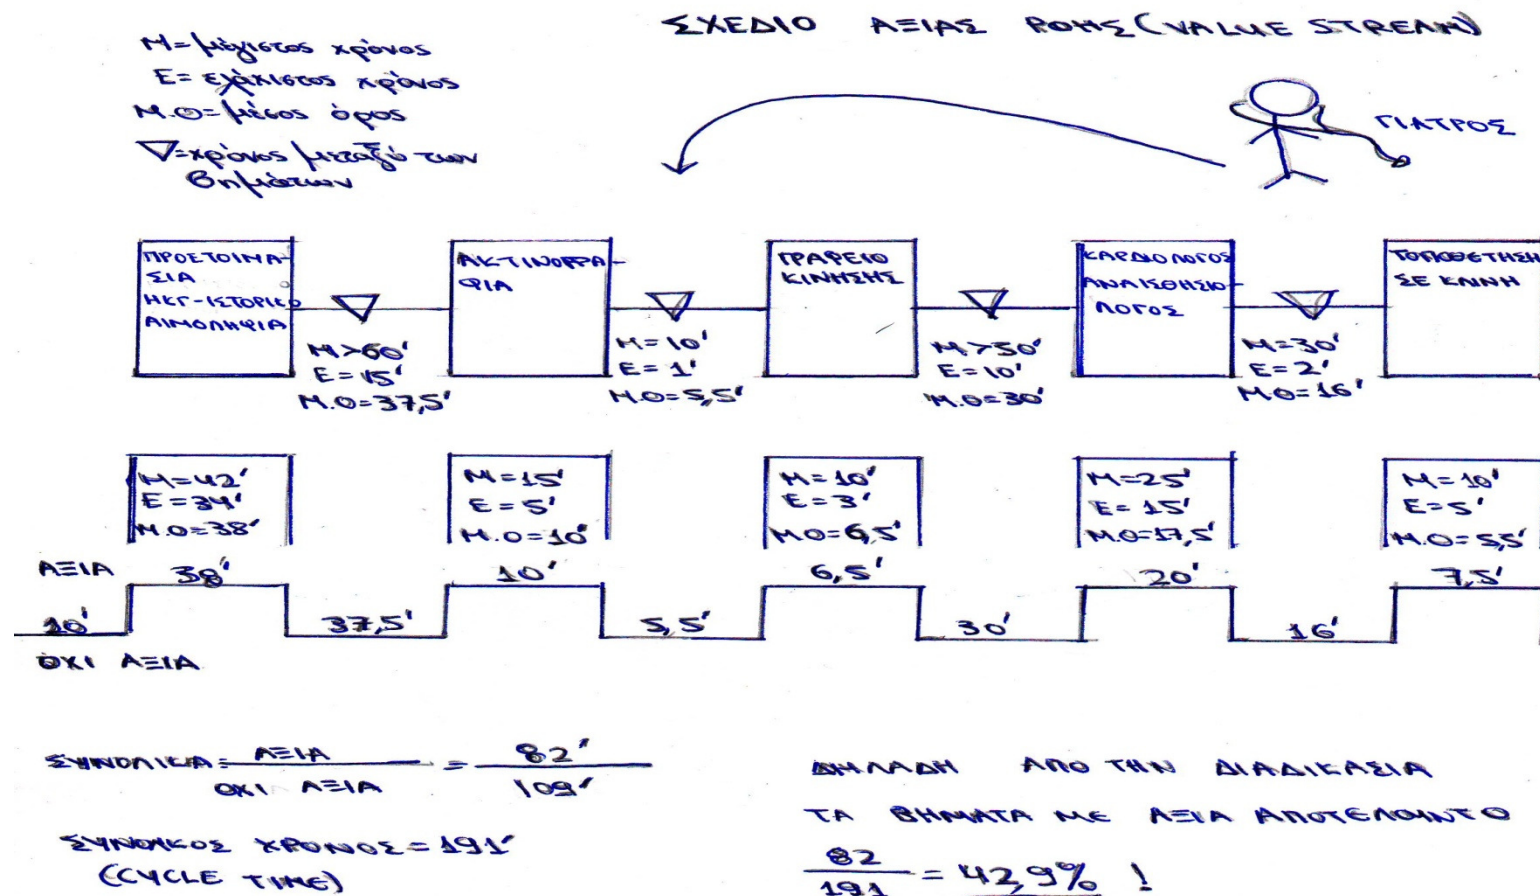 ΣΧΕΔΙΟ ΑΞΙΑΣ ΡΟΗΣ (VALUE STREAM)
Μ=μέγιστος χρόνος
Ε=ελάχιστος χρόνος
Μ.Ο=μέσος όρος
▽=χρόνος μεταξύ των
βημάτων
ΓΙΑΤΡΟΣ
ΠΡΟΕΤΟΙΜΑ-
ΣΙΑ
ΗΚΓ-ΙΣΤΟΡΙΚΟ
ΑΙΜΟΛΗΨΙΑ
Μ>60'
Ε=15'
Μ.Ο=37,5'
ΑΚΤΙΝΟΓΡΑ-
ΦΙΑ
Μ=10'
Ε=1'
Μ.Ο=5,5'
ΓΡΑΦΕΙΟ
ΚΙΝΗΣΗΣ
Μ>50'
Ε=10'
Μ.Ο=30'
ΚΑΡΔΙΟΛΟΓΟΣ
ΑΝΑΙΣΘΗΣΙΟ-
ΛΟΓΟΣ
Μ=30'
Ε=2'
Μ.Ο=16'
ΤΟΠΟΘΕΤΗΣΗ
ΣΕ ΚΛΙΝΗ
Μ=42'
Ε=34'
Μ.Ο=38'
Μ=15'
Ε=5'
Μ.Ο=10'
Μ=10'
Ε=3'
Μ.Ο=6,5'
Μ=25'
Ε=15'
Μ.Ο=17,5'
Μ=10'
Ε=5'
Μ.Ο=5,5'
ΑΞΙΑ 38' 10' 6,5' 20' 7,5'
10' 37,5' 5,5' 30' 16'
ΟΧΙ ΑΞΙΑ
ΣΥΝΟΛΙΚΑ= ΑΞΙΑ = 82'
ΟΧΙ ΑΞΙΑ 109'
ΣΥΝΟΛΙΚΟΣ ΧΡΟΝΟΣ=191'
(CYCLE TIME)
ΔΗΛΑΔΗ ΑΠΟ ΤΗΝ ΔΙΑΔΙΚΑΣΙΑ
ΤΑ ΒΗΜΑΤΑ ΜΕ ΑΞΙΑ ΑΠΟΤΕΛΟΥΝ ΤΟ
82
191 = 42,9% !